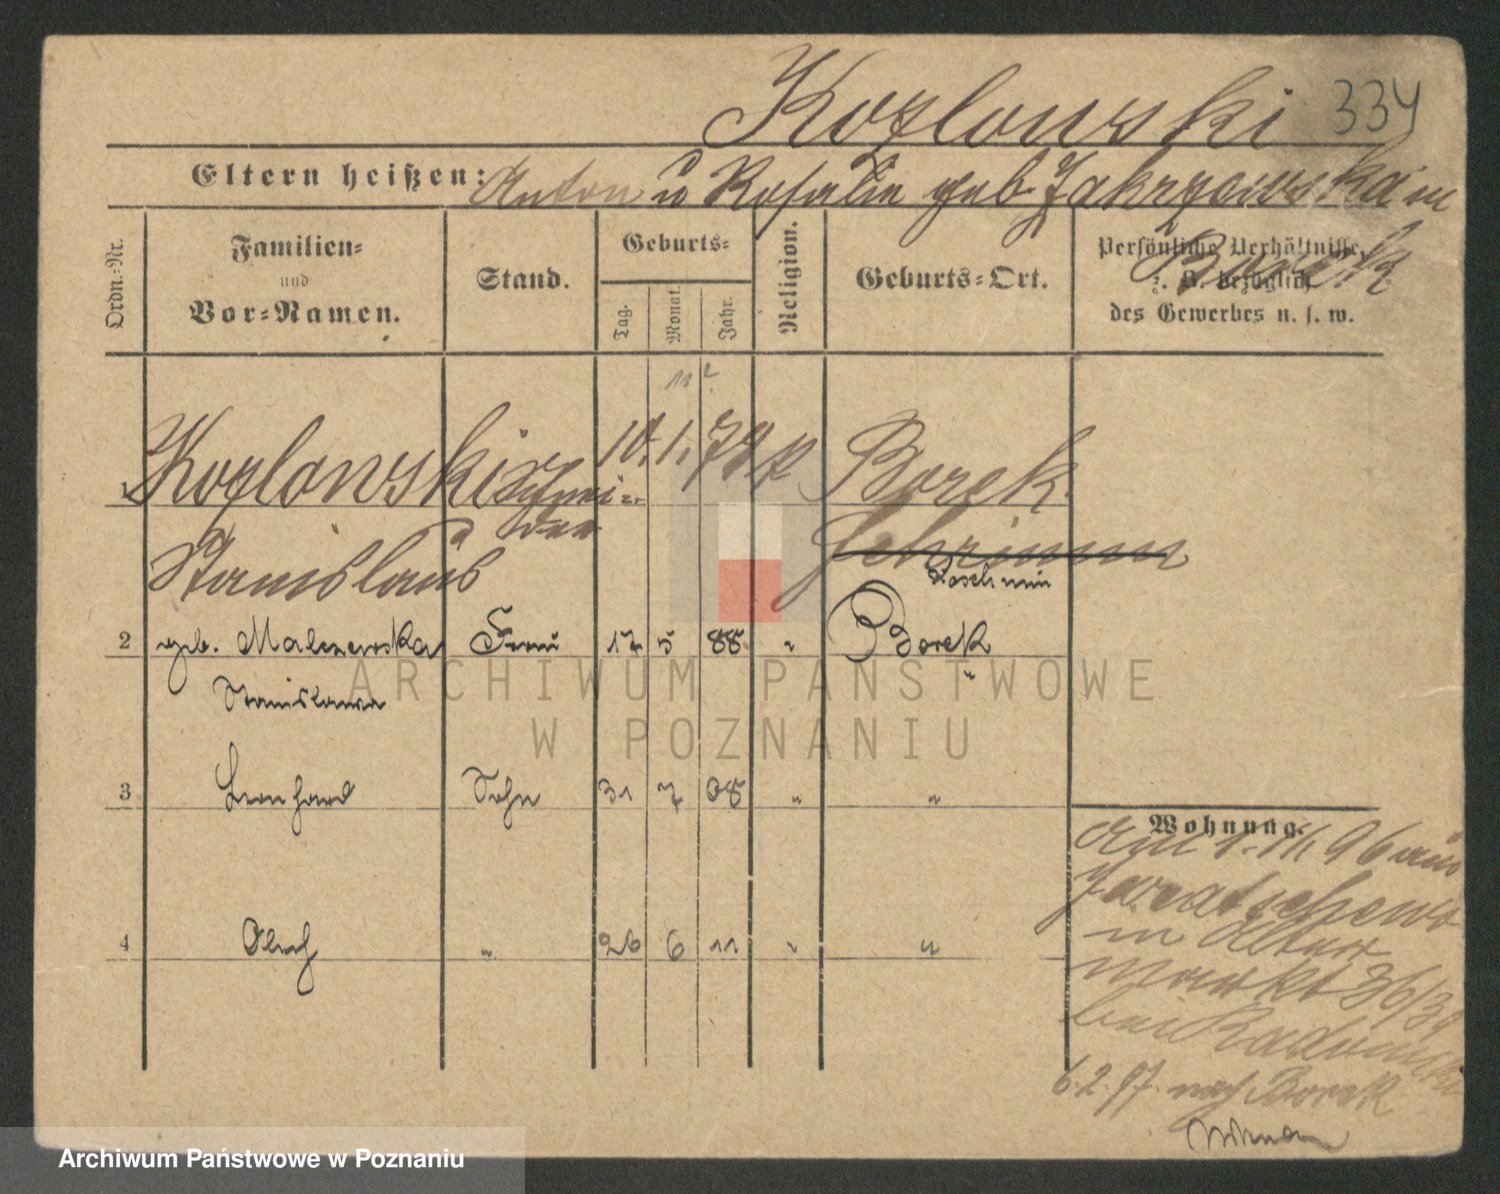 Kozlowski 334
Eltern heißen: Anton u Rosalie geb. Zakrzewska in
Borek
Ordn.-Nr.
Familien- und Vor-Namen.
Stand.
Geburts- Tag. Monat. Jahr.
Religion.
Geburts-Ort.
Persönliche Verhältnisse, z. B. bezüglich des Gewerbes u. s. w.
11
1 Kozlowski Schnei- 10. 1. Borek
Stanislaus der Schrimm
Koschmin
2 geb. Malczewska Frau 17 5 88 " Borek
Stanislawa "
3 Leonhard Sohn 31 7 08 " "
4 " 26 6 11 " "
Wohnung.
am 1. 11. 96 aus
Jaratschewo
in Alten
Markt 36/39
bei Radomski
6.2.97. nach Borek
ARCHIWUM PAŃSTWOWE
W POZNANIU
Archiwum Państwowe w Poznaniu